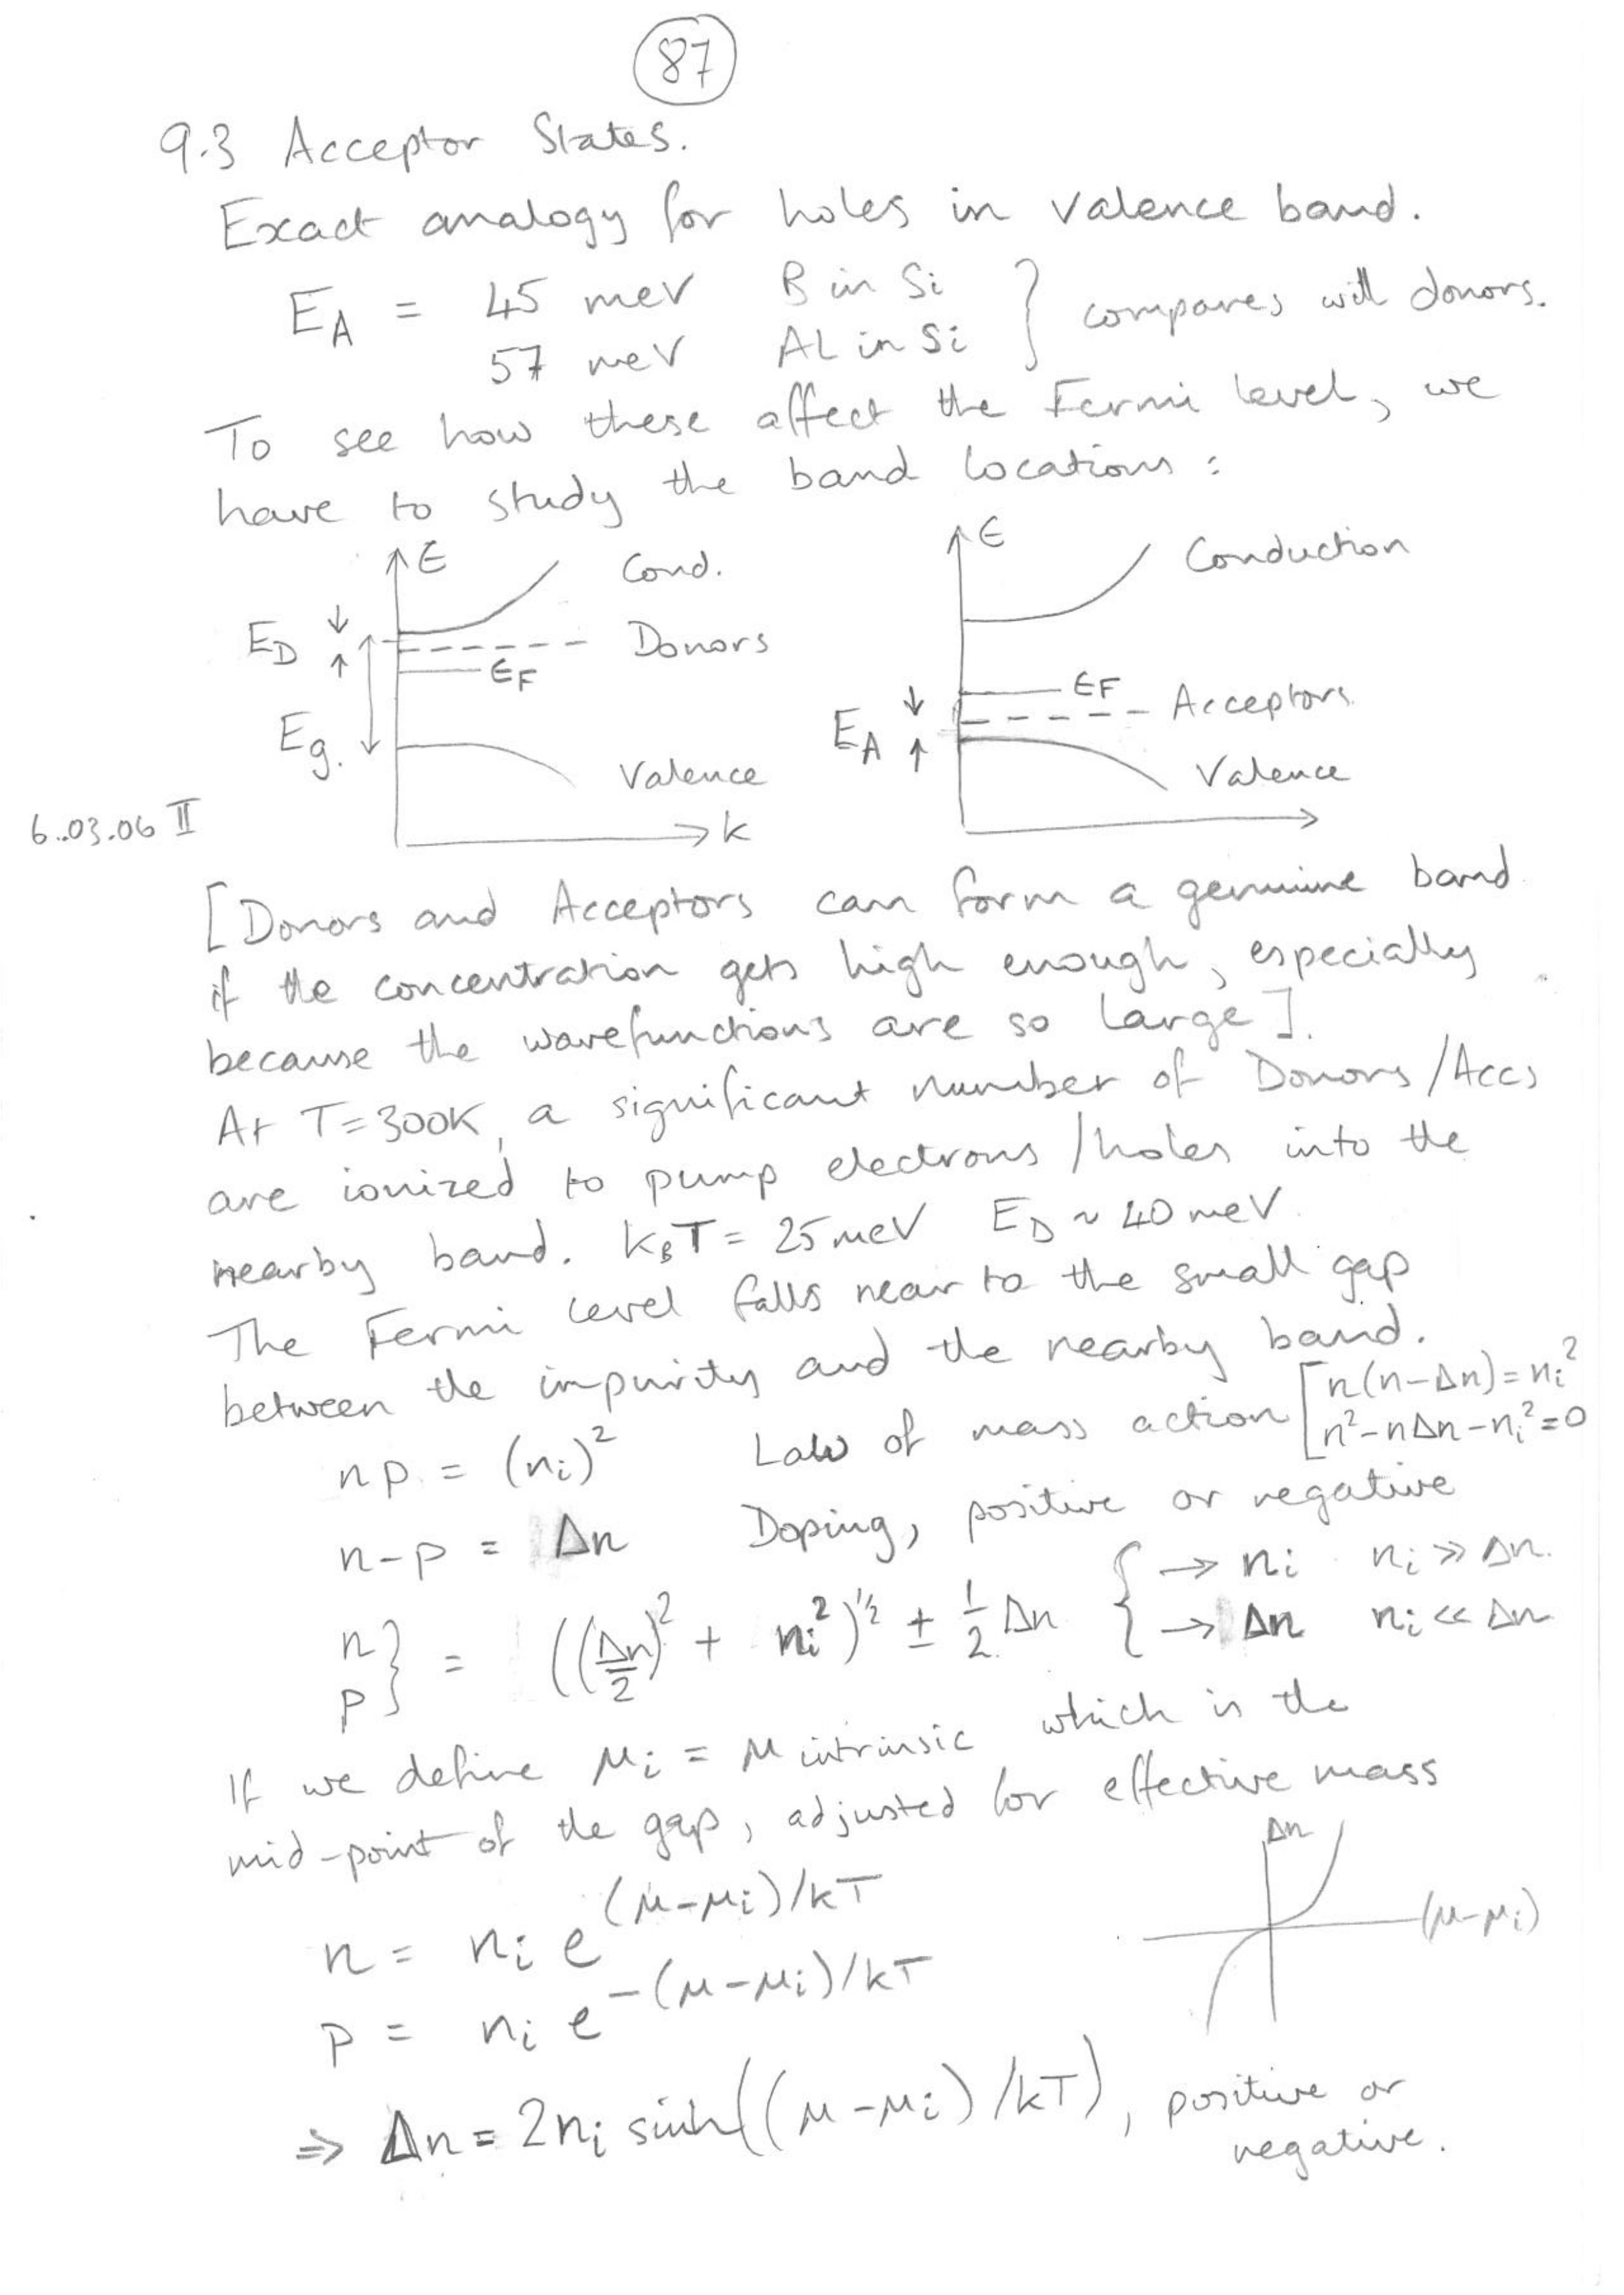 87
9.3 Acceptor States.
Exact analogy for holes in valence band.
E_A = 45 meV B in Si } compares with donors.
57 meV Al in Si
To see how these affect the Fermi level, we
have to study the band locations :
E Cond.
E_D Donors
E_F
E_g.
Valence
k
E Conduction
E_F
E_A Acceptors
Valence
6.03.06 II
[Donors and Acceptors can form a genuine band
if the concentration gets high enough, especially
because the wavefunctions are so large].
At T=300K, a significant number of Donors/Accs
are ionized to pump electrons/holes into the
nearby band. k_BT = 25 meV E_D ~ 40 meV
The Fermi level falls near to the small gap
between the impurity and the nearby band.
np = (n_i)^2 Law of mass action [n(n-Δn)=n_i^2
n^2-nΔn-n_i^2=0
n-p = Δn Doping, positive or negative
n p } = ((Δn/2)^2 + n_i^2)^½ ± 1/2 Δn { → n_i n_i >> Δn.
→ Δn n_i << Δn
If we define μ_i = μ intrinsic which is the
mid-point of the gap, adjusted for effective mass
n = n_i e^(μ-μ_i)/kT
p = n_i e^-(μ-μ_i)/kT
Δn
(μ-μ_i)
⇒ Δn = 2n_i sinh((μ-μ_i)/kT), positive or
negative.